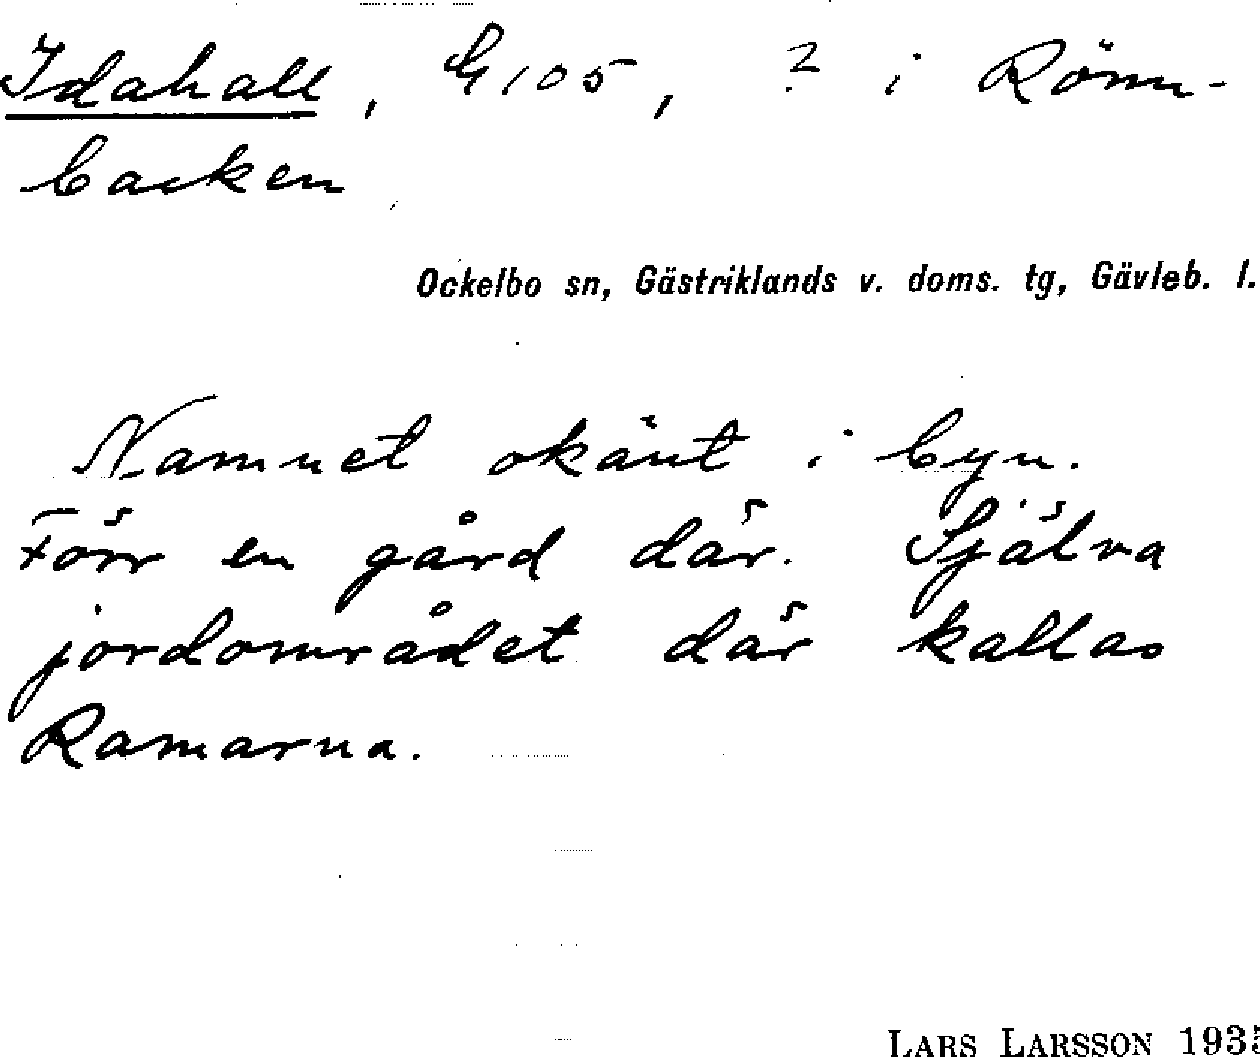 Idahall, G105, ? i Rönn-
backen
Ockelbo sn, Gästriklands v. doms. tg, Gävleb. l.
Namnet okänt i byn.
Förr en gård där. Själva
jordområdet där kallas
Ramarna.
LARS LARSSON 1935